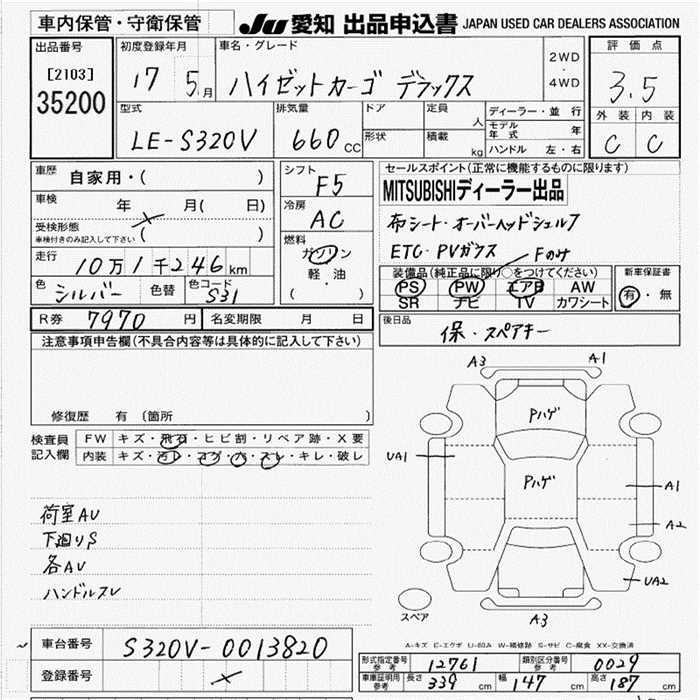 車内保管・守衛保管
JU 愛知 出品申込書 JAPAN USED CAR DEALERS ASSOCIATION
出品番号
[2103]
35200
初度登録年月
17 5月
車名・グレード
ハイゼットカーゴ デラックス
2WD
・
4WD
評価点
3.5
外装 内装
C C
型式
LE-S320V
排気量
660 CC
ドア
形状
定員 人
積載 kg
ディーラー・並行
モデル年式 年
ハンドル 左・右
車歴
自家用・( )
車検
年 月( 日)
受検形態
車検付きのみ記入して下さい
( )
走行
10万1千246km
色
シルバー
色替
色コード
S31
シフト
F5
冷房
AC
燃料
ガソリン
軽・油
( )
セールスポイント(正常に機能するものに限ります)
MITSUBISHIディーラー出品
布シート・オーバーヘッドシェルフ
ETC・PVガラス Fのみ
装備品(純正品に限り○をつけてください)
PS PW エアB AW
SR ナビ TV カワシート
新車保証書
有・無
R券 7970 円
名変期限 月 日
後日品
保・スペアキー
注意事項申告欄(不具合内容等は具体的に記入して下さい)
修復歴 有 (箇所 )
検査員
記入欄
FW キズ・飛石・ヒビ割・リペア跡・X要
内装 キズ・汚レ・コゲ・穴・スレ・キレ・破レ
荷室AU
下廻りS
各AU
ハンドルスレ
A3
A1
Pハゲ
UA1
Pハゲ
A1
A2
UA2
スペア
A3
A-キズ E-エクボ U-凹み W-補修跡 S-サビ C-腐食 XX-交換済
車台番号
S320V-0013820
登録番号
形式指定番号
参考
12761
類別区分番号
参考
0029
車庫証明用
参考
長さ 339 cm
幅 147 cm
高さ 187 cm